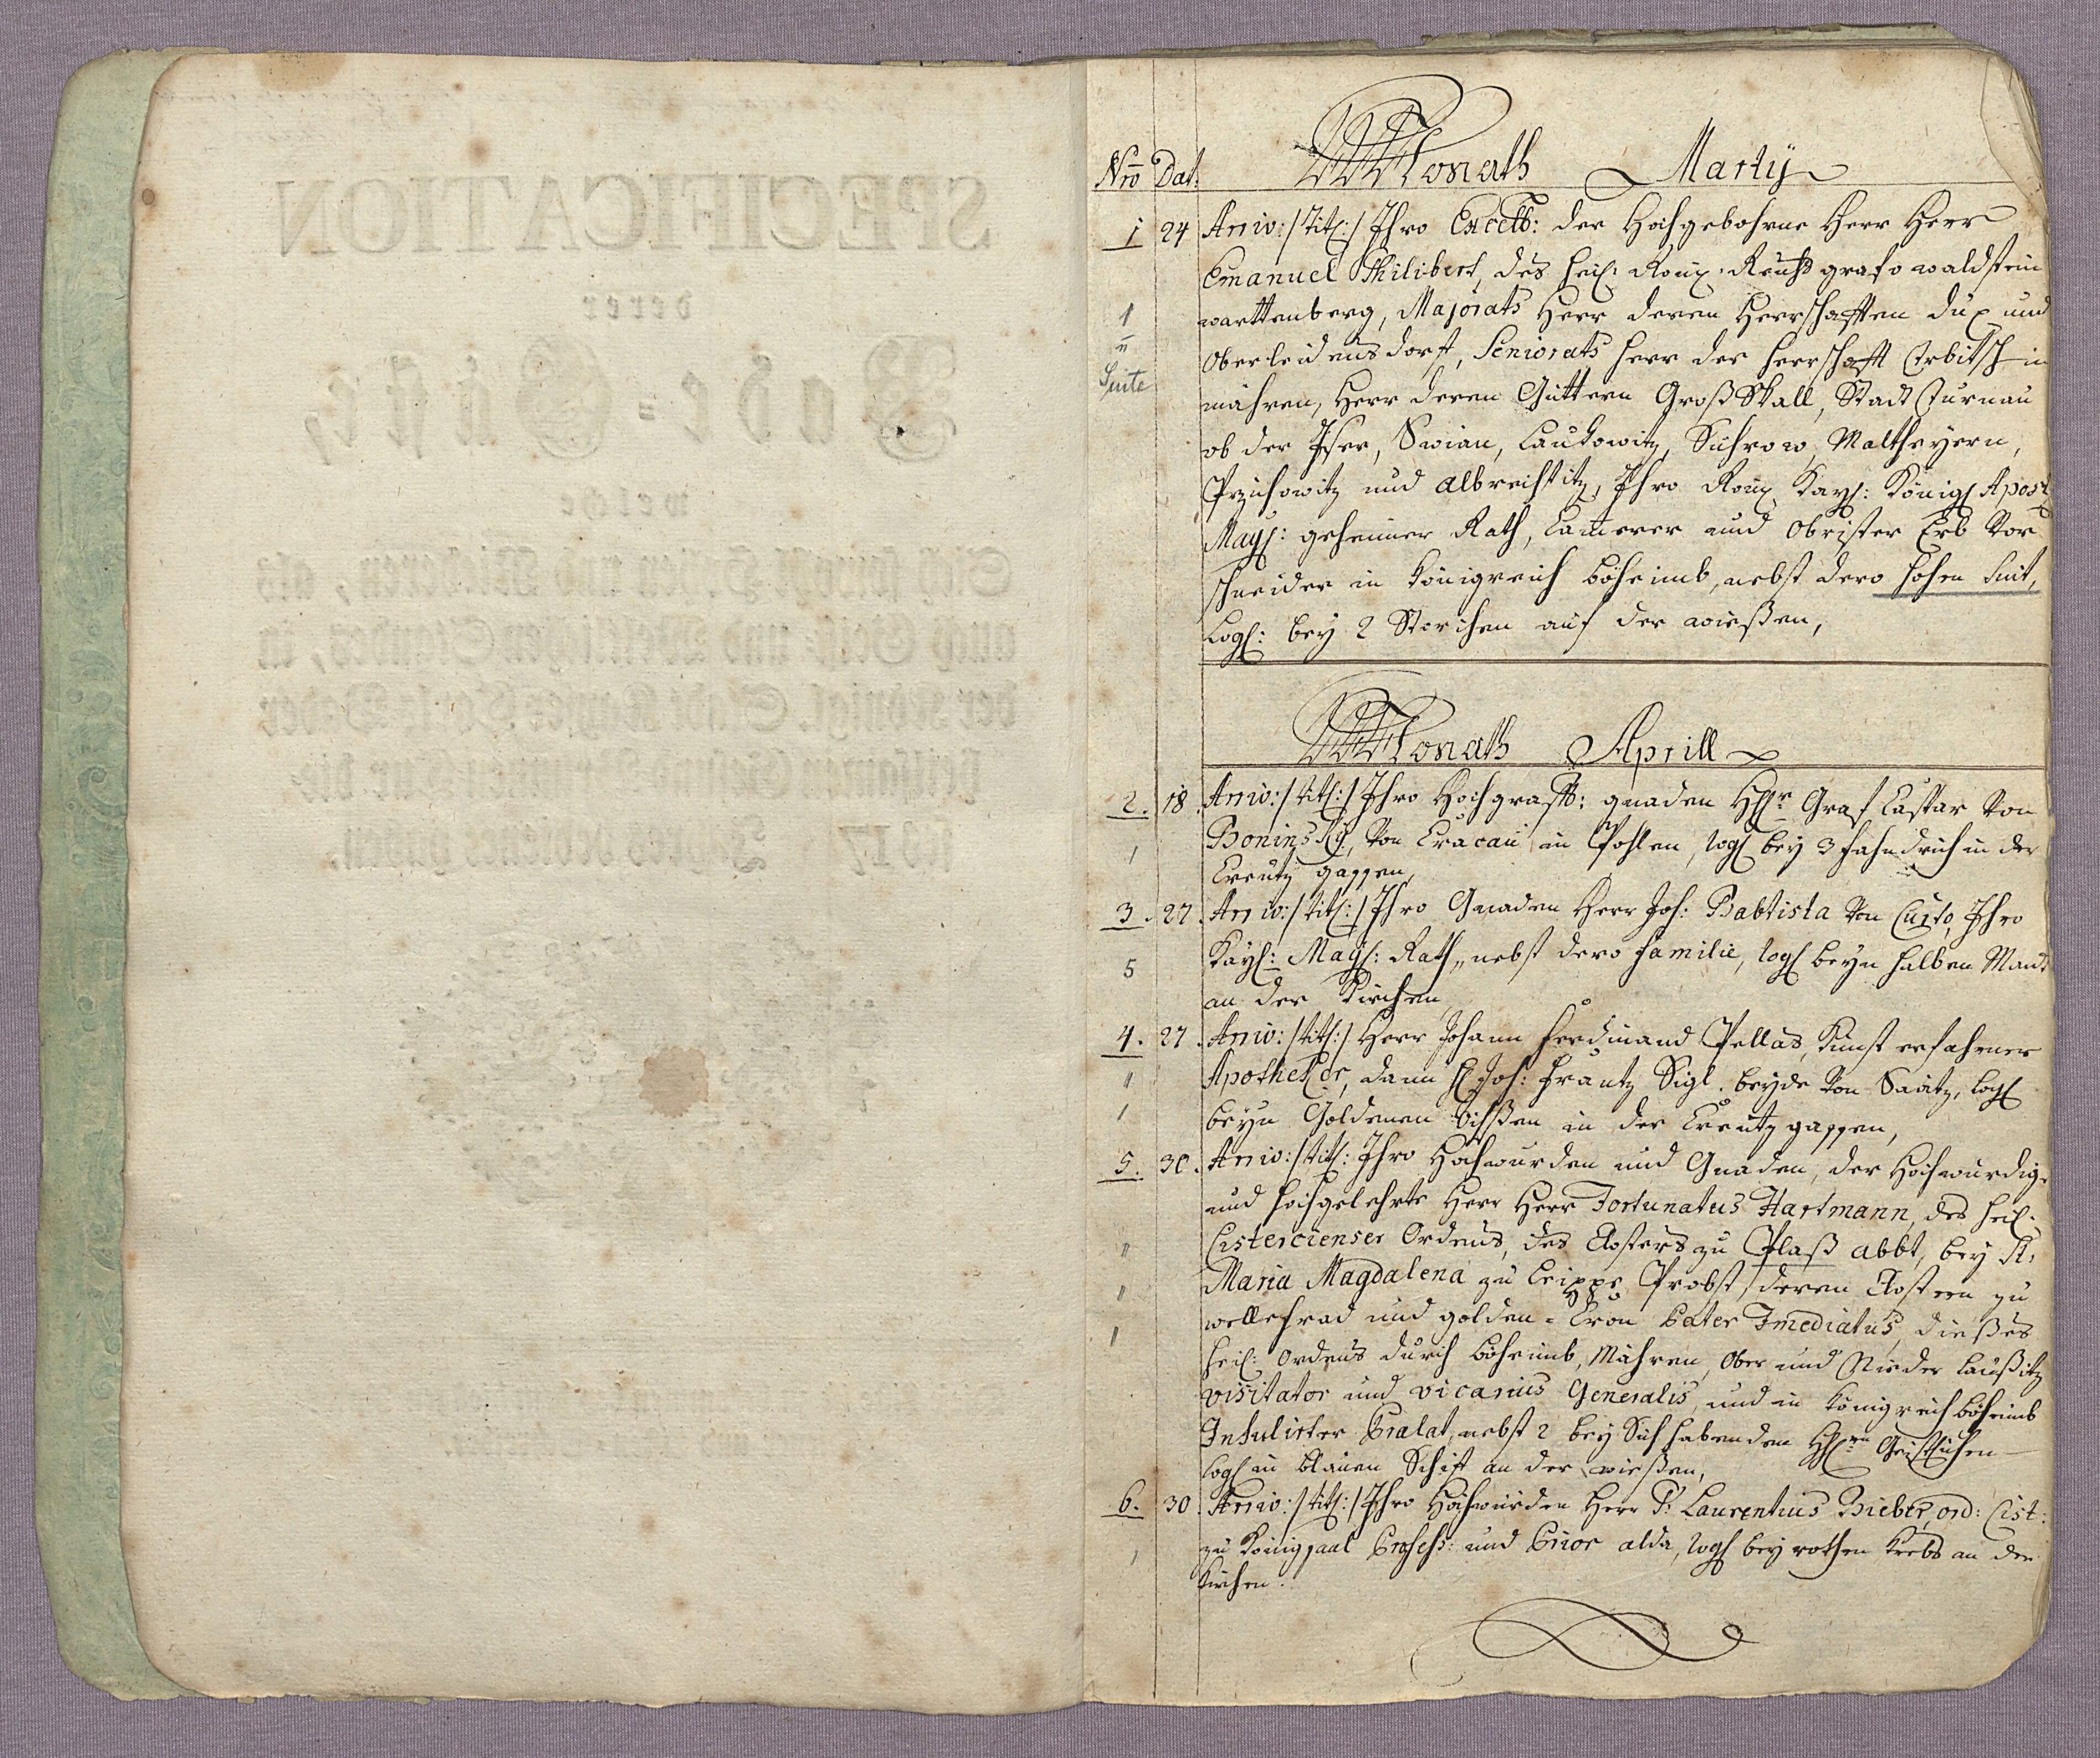 SPECIFICATION
derer
Bade-Gäste,
welche
Nro Dat: Monath Martij
1 24 Arriv: /:tit:/ Ihro Excell: der Hochgebohrne Herr Herr
Emanuel Philibert, des heil: Röm: Reichs graf v waldstein
1 warttenberg, Majorats Herr deren Herrschafften dux und
Oberleidensdorf, Seniorats herr der herrschafft Trebitsch in
Suite mähren, Herr deren Güttern Groß Skall, Stadt Turnau
ob der Iser, Swian, Laukowitz, Sichrow, Maltheyern,
Przichowitz und Albrechtitz, Ihro Röm: Kay: Königl Apost:
May: geheimer Rath, Camerer und Obrister Erb Vor
schneider in Königreich böheimb, nebst dero hohen Suit,
Log: bey 2 Storchen auf der wießen,
Monath Aprill
2. 18. Arriv: /:tit:/ Ihro Hochgräffl: gnaden H: Graf Caspar Von
1 Boninsky, Von Cracau in Pohlen, log: bey 3 fahndrich in der
Creutz gassen,
3. 27. Arriv: /:tit:/ Ihro Gnaden Herr Joh: Babtista Von Curto, Ihro
5 Kay: May: Rath, nebst dero familie, log: beyn halben Mand
an der Kirchen,
4. 27. Arriv: /:tit:/ Herr Johann Ferdinand Pellas, Kunst erfahrner
1 Apothecker, dann H Joh: Frantz Sigl. beyde Von Saatz, log:
1 beyn Goldenen in der Creutz gassen,
5. 30. Arriv: /:tit: Ihro Hochwürden und Gnaden, der Hochwürdige
und hochgelehrte Herr Herr Fortunatus Hartmann, des heil:
1 Cistercienser Ordens, des Closters zu Plaß abbt, bey St:
1 Maria Magdalena zu Probst, deren Clostern zu
1 wellehrad und golden-Cron Pater Imediatus, dießes
heil: Ordens durch böheimb, Mähren, Ober und Nieder laußitz
visitator und vicarius Generalis, und in Königreich böheimb
Infulirter Prälat, nebst 2 bey Sich habenden H: Geistlichen
log: in blauen Schift an der wießen,
6. 30. Arriv: /:tit:/ Ihro Hochwürden Herr P: Laurentius Bieber, ord: Cist:
1 zu Königsaal Profess: und Prior alda, log: bey rothen Krebs an der
Kirchen.